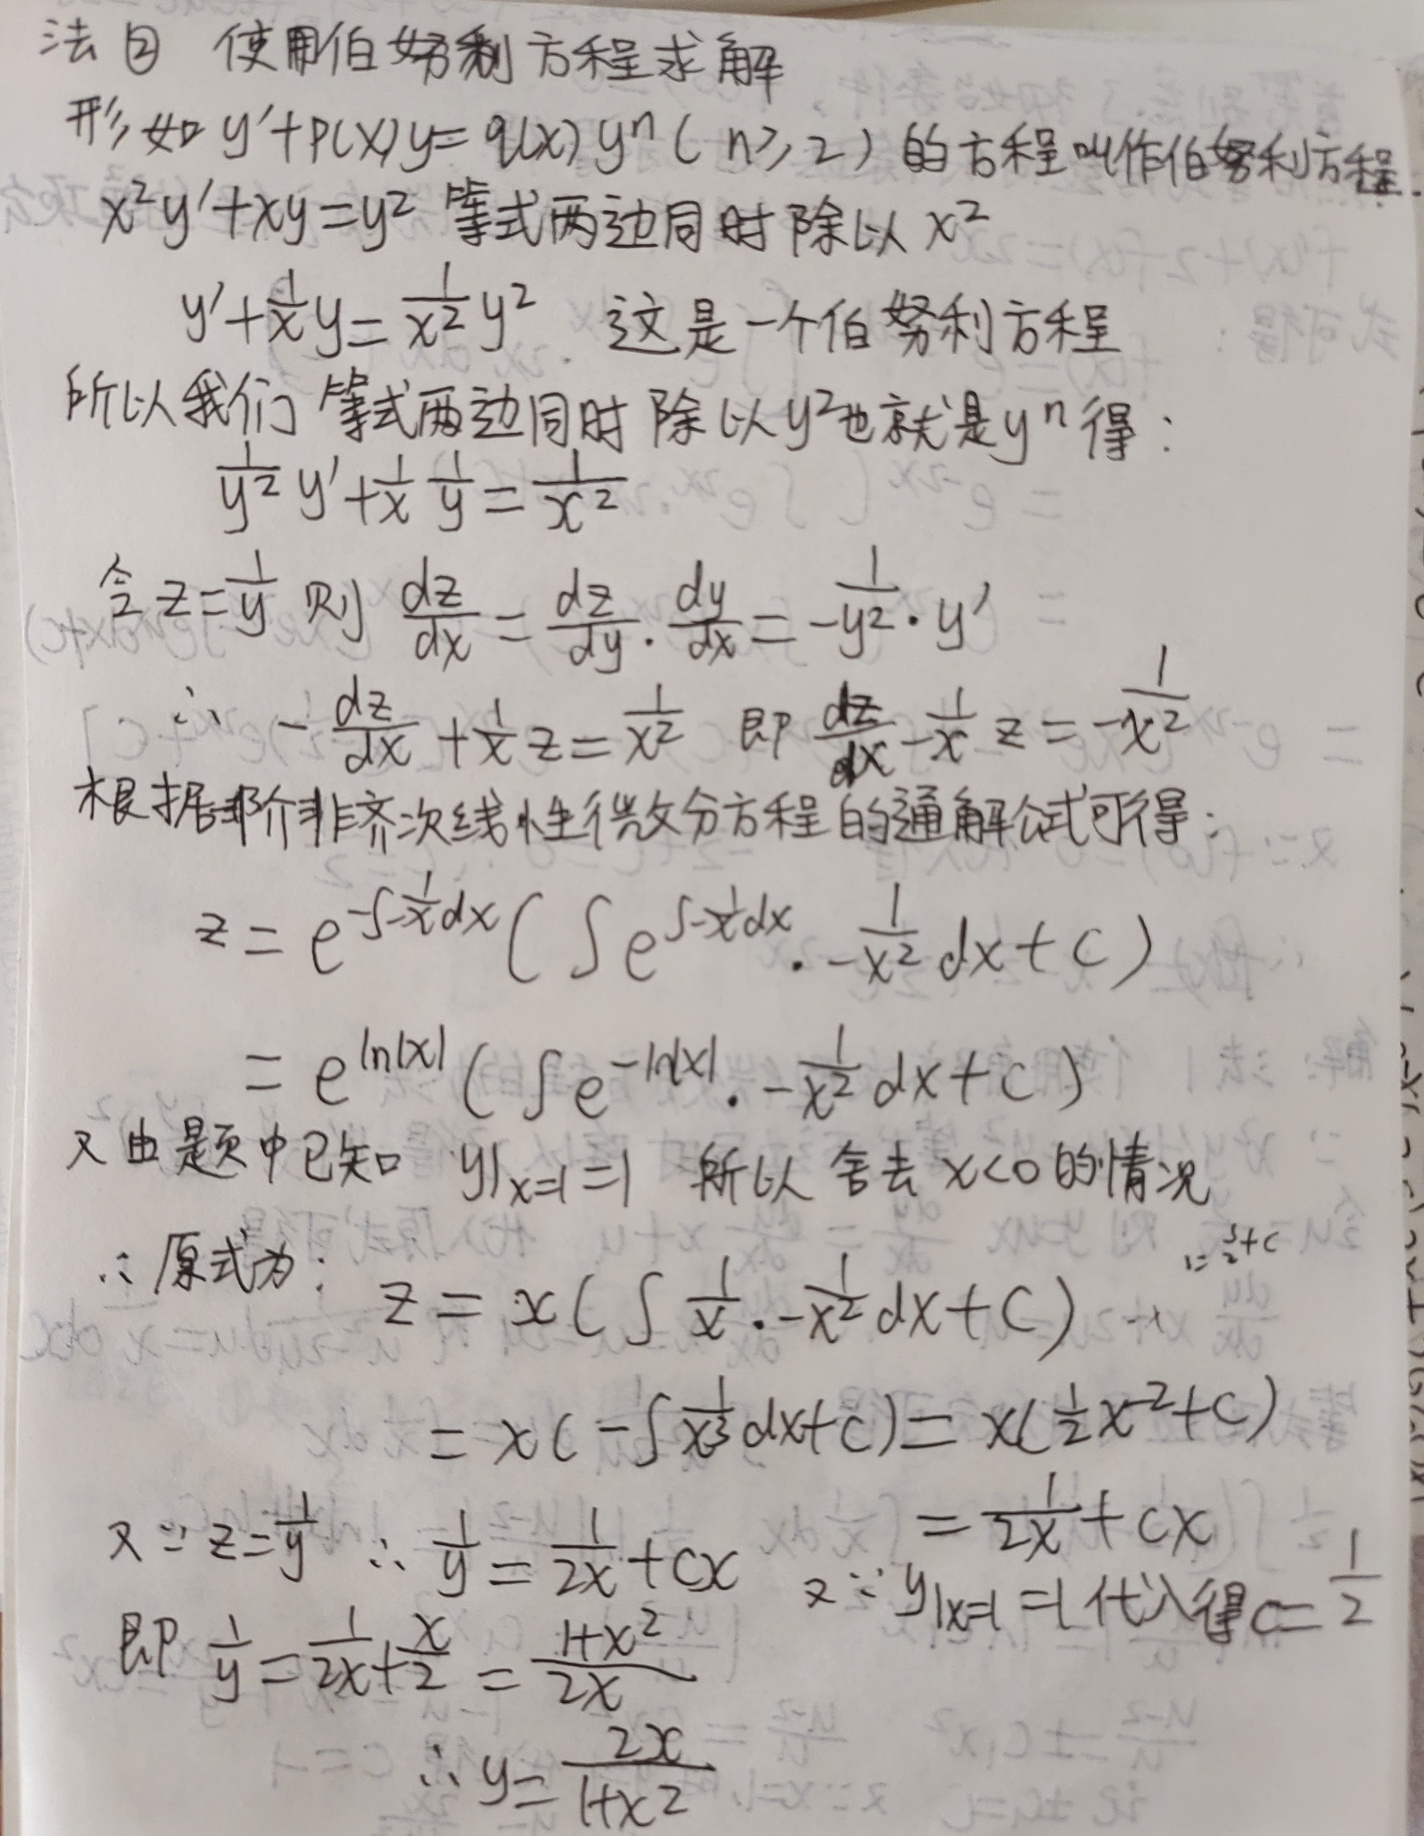 法② 使用伯努利方程求解
形如 y'+p(x)y=q(x)yⁿ(n≥2)的方程叫作伯努利方程.
x²y'+xy=y² 等式两边同时除以x²
y'+1/x y=1/x² y² 这是一个伯努利方程
所以我们等式两边同时除以y²也就是yⁿ得:
1/y² y'+1/x 1/y=1/x²
令z=1/y 则 dz/dx=dz/dy·dy/dx=-1/y²·y'
∴ -dz/dx+1/x z=1/x² 即 dz/dx-1/x z=-1/x²
根据非齐次线性微分方程的通解公式可得:
z=e^(-∫-1/x dx)(∫e^(∫-1/x dx)·-1/x² dx+c)
=e^(ln|x|)(∫e^(-ln|x|)·-1/x² dx+c)
又由题中已知 y|x=1=1 所以舍去x<0的情况
∴原式为: z=x(∫1/x·-1/x² dx+C)
=x(-∫1/x³ dx+c)=x(1/2 x⁻²+C)
=1/2x+cx
又∵z=1/y ∴1/y=1/2x+cx 又∵y|x=1=1代入得c=1/2
即 1/y=1/2x+x/2=1+x²/2x
∴y=2x/1+x²